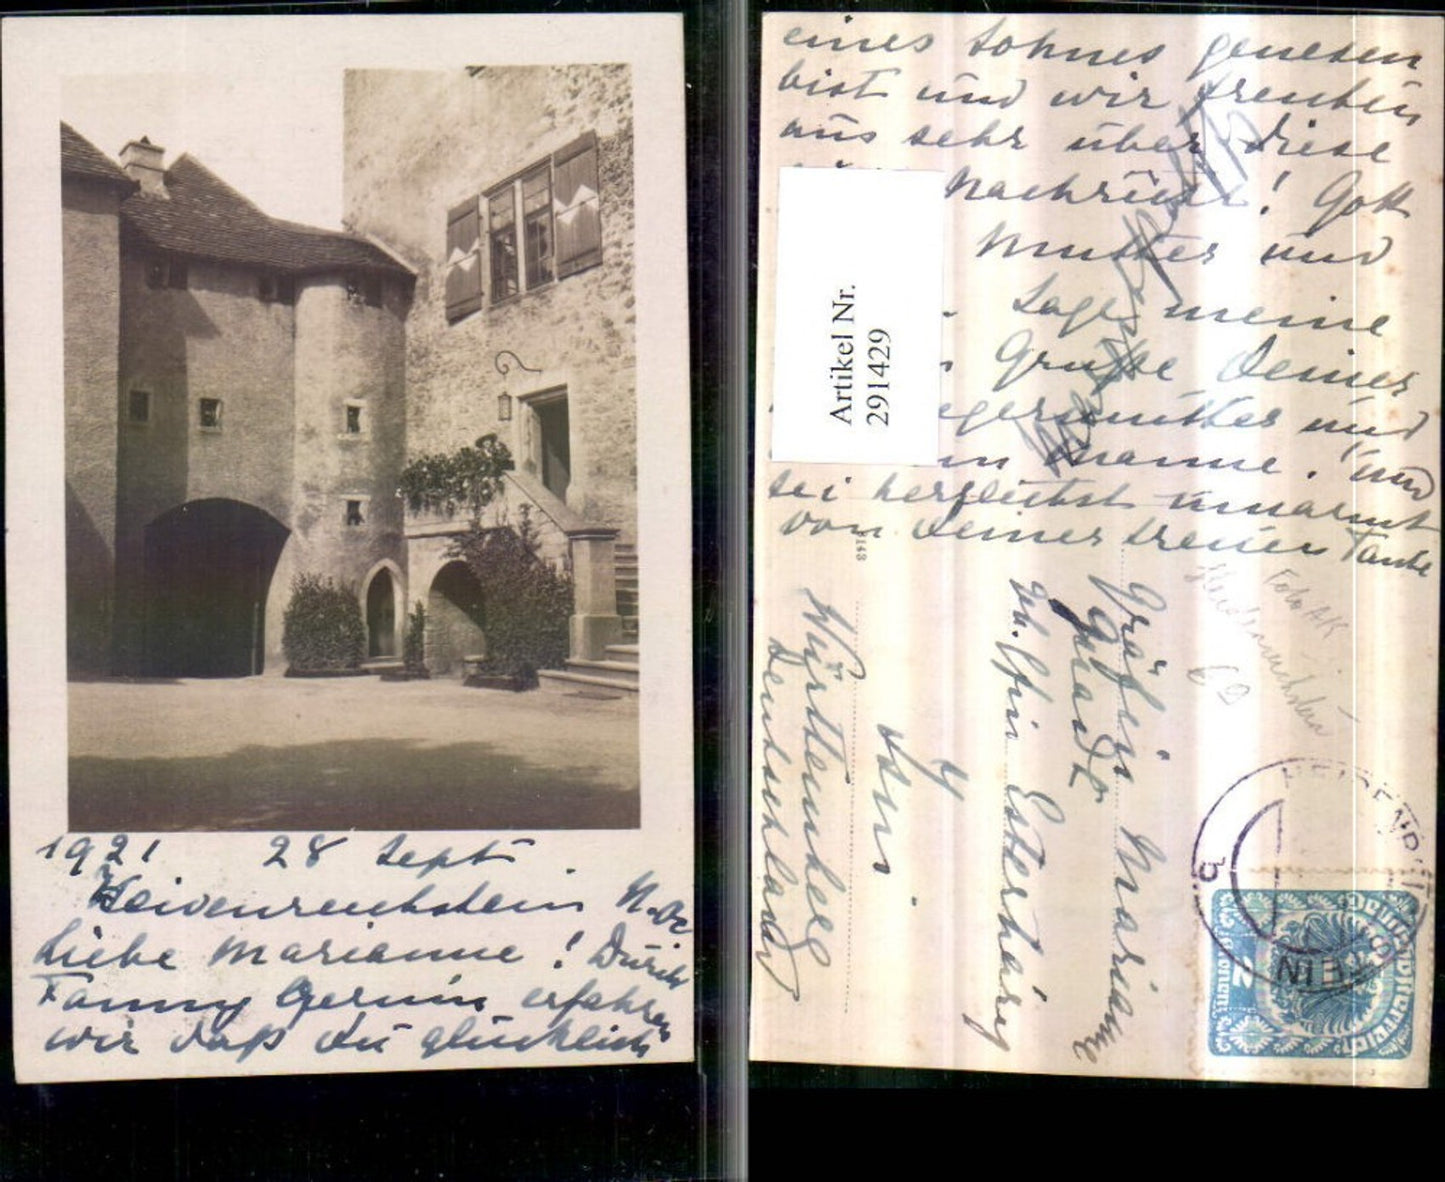 1921 28 Sept.
Heidenreichstein N. Oe
Liebe Marianne! Durch
Fanny Germin erfahren
wir daß du glücklich
eines Sohnes genesen
bist und wir freuten
uns sehr über diese
Nachricht! Gott
Mutter und
Sage meine
Grüße, Deiner
egermutter und
Manne. und
sei herzlichst umarmt
von Deiner treuen Tante
Artikel Nr.
291429
Gräfin Marianne
Quadt
Esterházy
Isny
Württemberg
Deutschland
Foto AK
Heidenreichstein
HEIDENREICHSTEIN
b
2
Kronen
Deutschösterreich